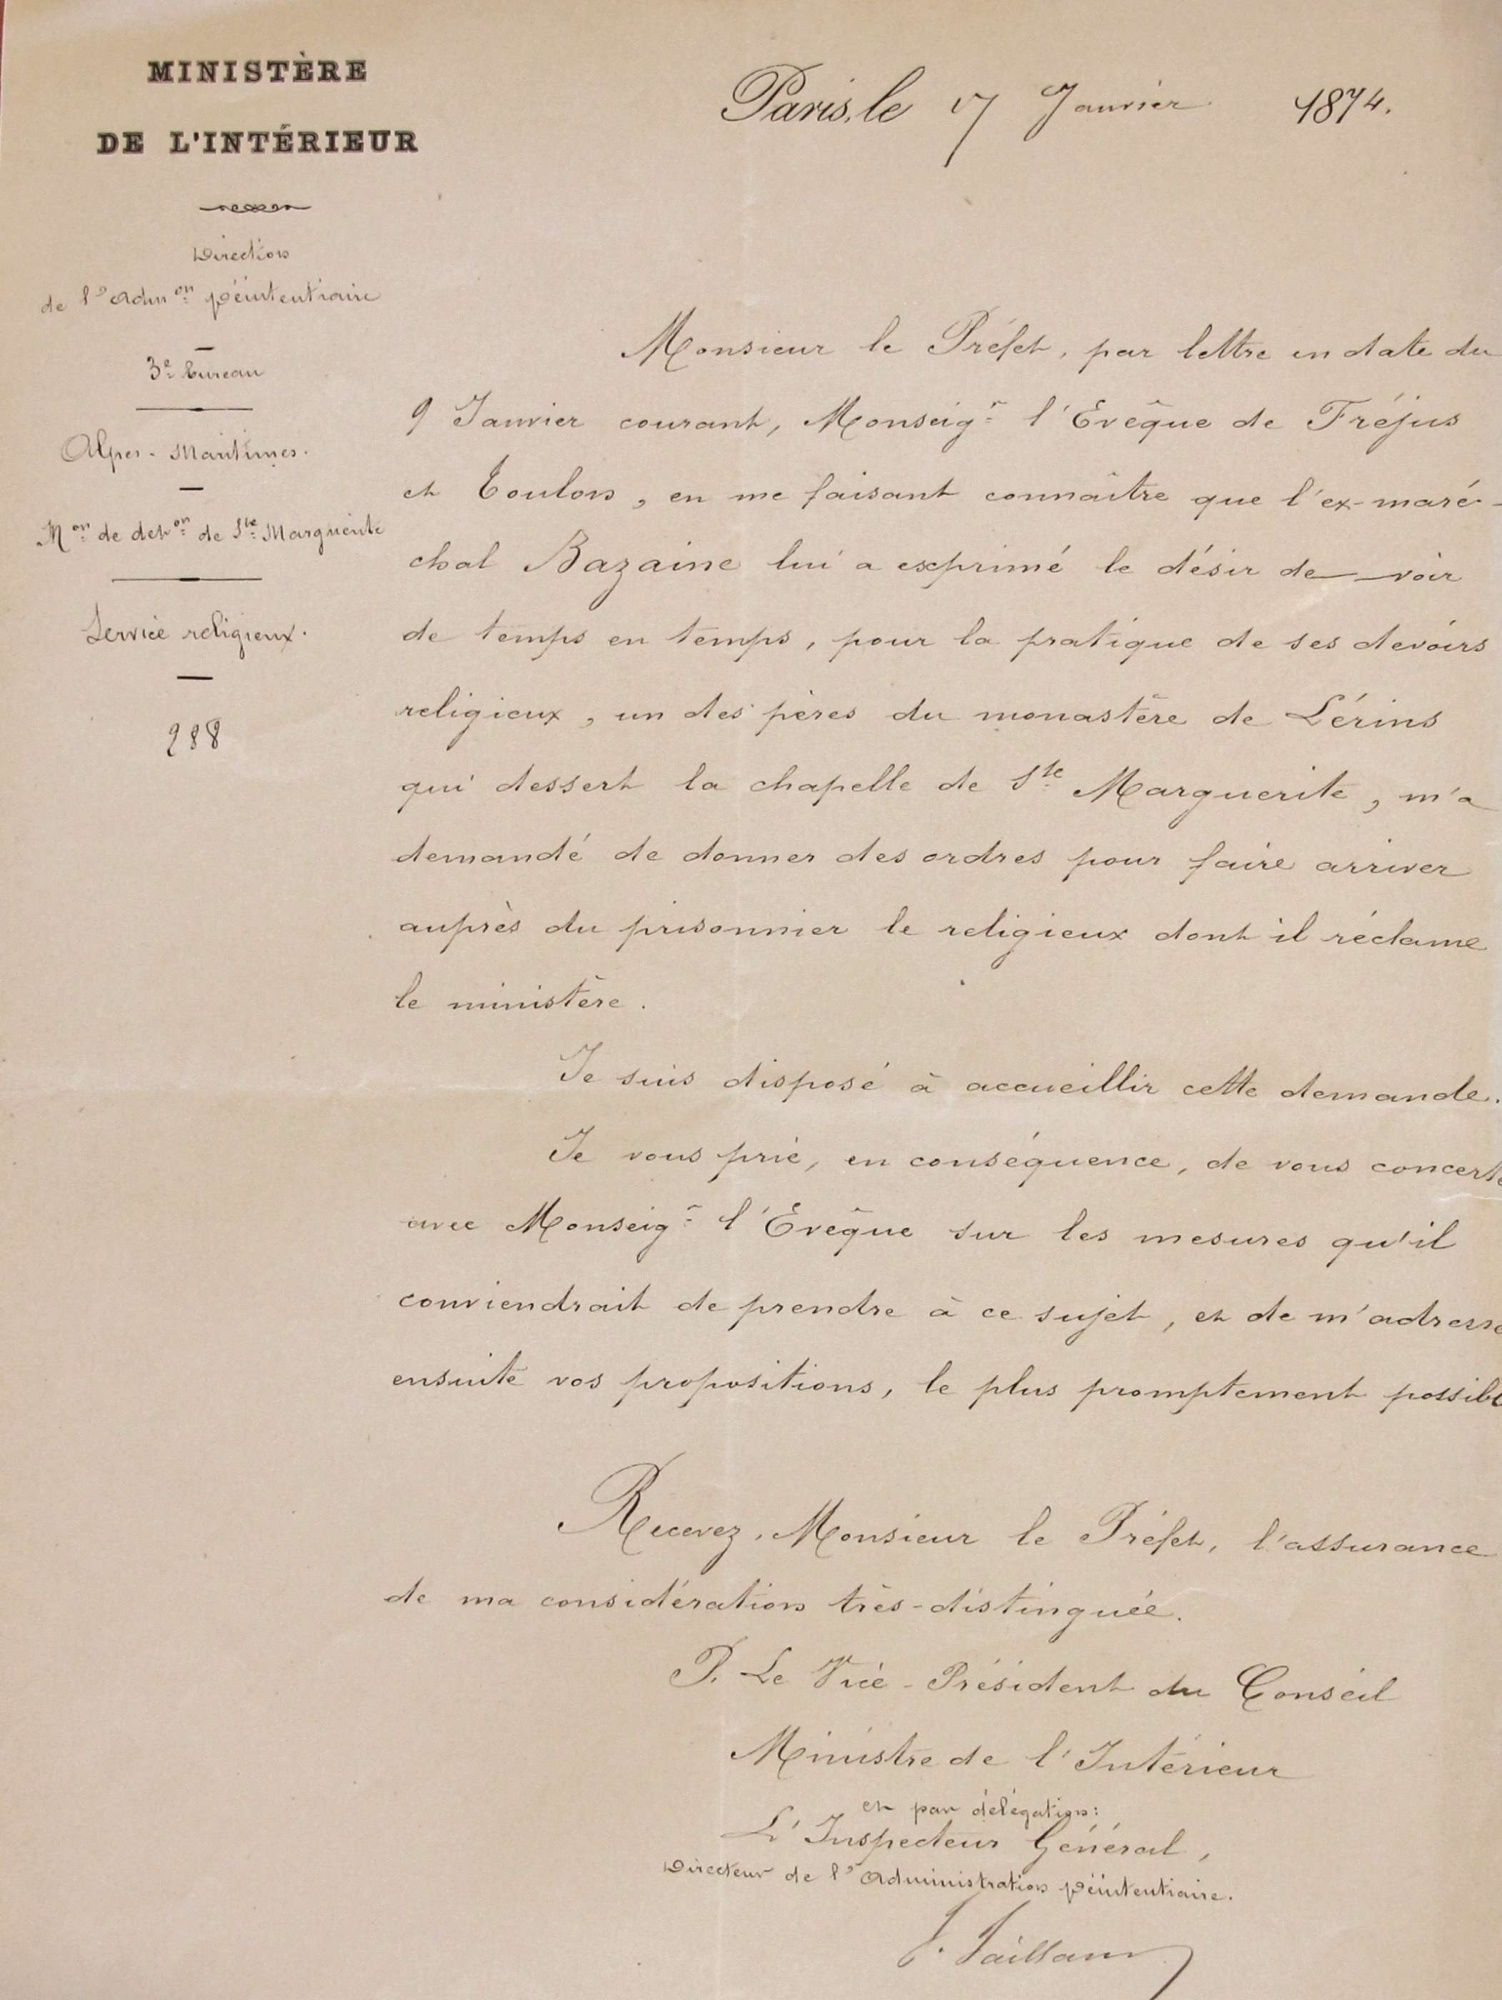 MINISTÈRE
DE L'INTÉRIEUR
Direction
de l'Admon pénitentiaire
3e bureau
Alpes-Maritimes.
Mon de deton de Ste Marguerite
Service religieux.
288
Paris, le 17 Janvier 1874.
Monsieur le Préfet, par lettre en date du
9 Janvier courant, Monseigr l'Evêque de Fréjus
et Toulon, en me faisant connaître que l'ex-maré-
chal Bazaine lui a exprimé le désir de voir
de temps en temps, pour la pratique de ses devoirs
religieux, un des pères du monastère de Lérins
qui dessert la chapelle de Ste Marguerite, m'a
demandé de donner des ordres pour faire arriver
auprès du prisonnier le religieux dont il réclame
le ministère.
Je suis disposé à accueillir cette demande.
Je vous prie, en conséquence, de vous concerte
avec Monseigr l'Evêque sur les mesures qu'il
conviendrait de prendre à ce sujet, et de m'adresse
ensuite vos propositions, le plus promptement possibl
Recevez, Monsieur le Préfet, l'assurance
de ma considération très-distinguée.
P. Le Vice-Président du Conseil
Ministre de l'Intérieur
et par délégation:
L'Inspecteur Général,
Directeur de l'Administration pénitentiaire.
J. Jaillant